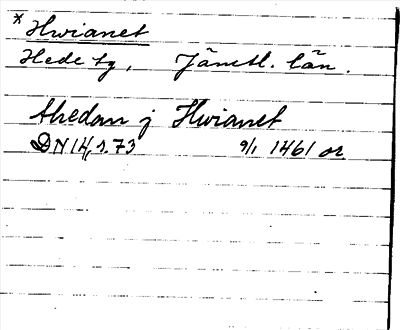 * Hwianet
Hede tg, Jämtl. län.
Hredan j Hwianet
DN 14, s. 73 9/1 1461 or